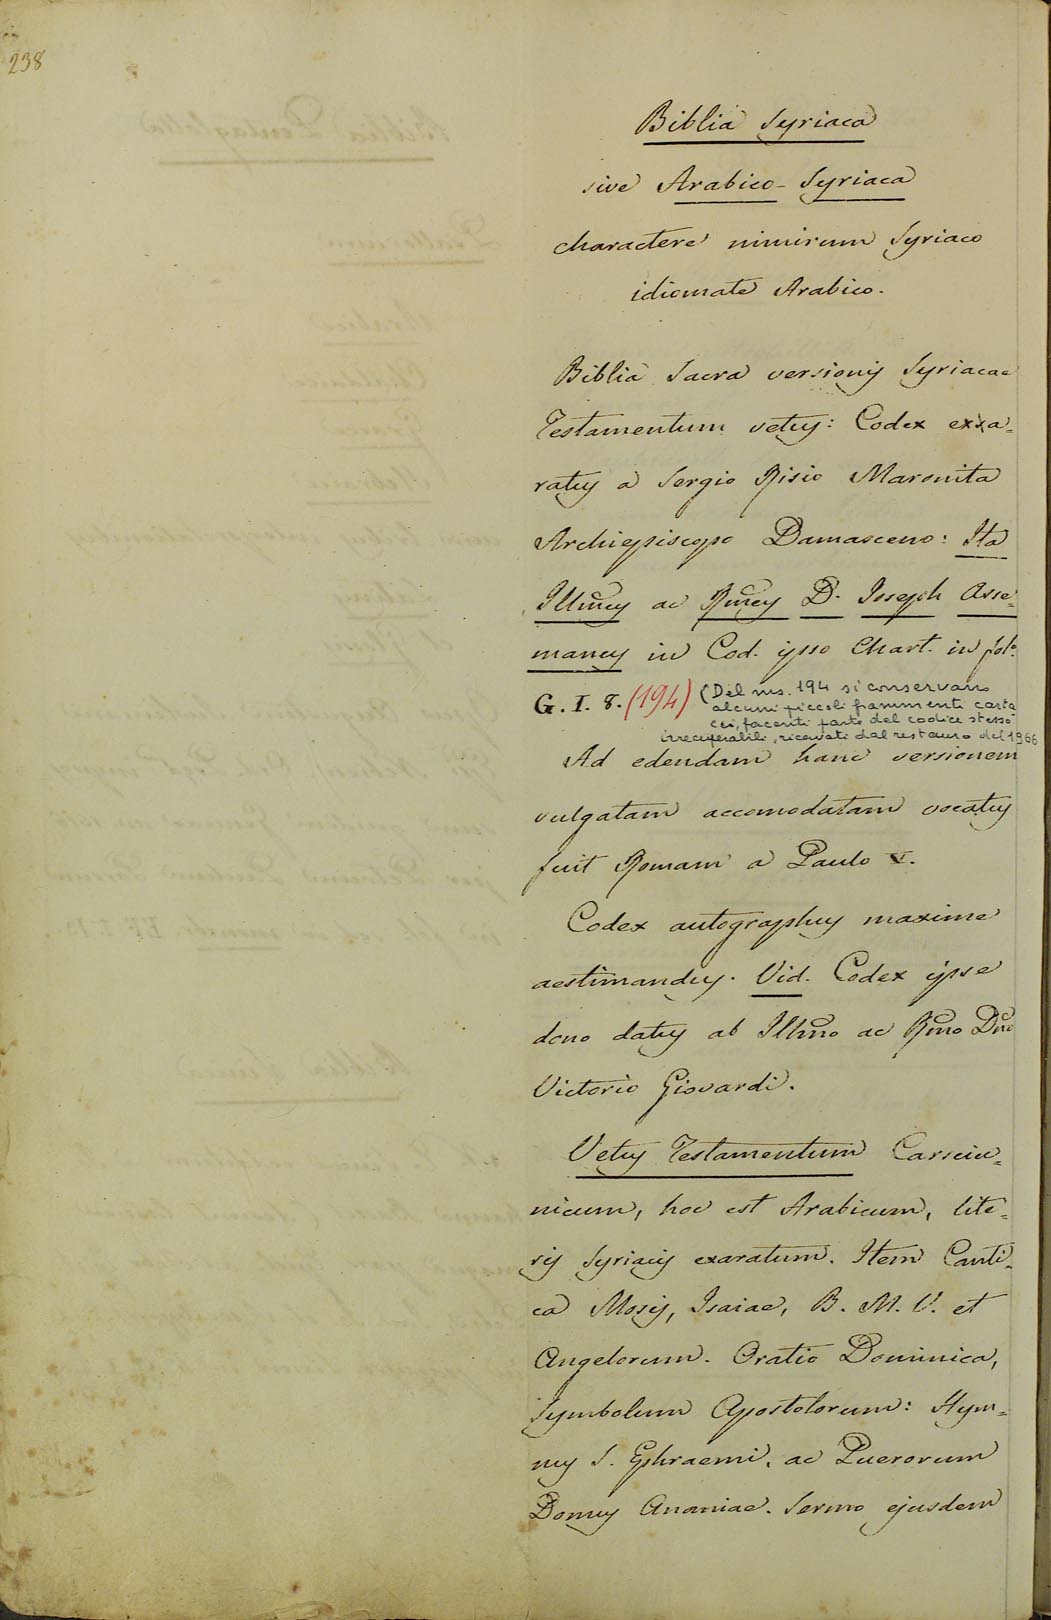 238
Biblia Syriaca
sive Arabico-Syriaca
charactere nimirum Syriaco
idiomate Arabico.
Biblia Sacra versionis Syriacae
Testamentum vetus: Codex exa=
ratus a Sergio Risio Maronita
Archiepiscopo Damasceno: Ita
Illm̃us ac Rm̃us D. Joseph Asse=
manus in Cod. ipso Chart. in fol.º
G. I. 8. (194) (Del ms. 194 si conservano
alcuni piccoli frammenti carta
cei, facenti parte del codice stesso
irrecuperabili, ricavati dal restauro del 1966
Ad edendam hanc versionem
vulgatam accomodatam vocatus
fuit Romam a Paulo V.
Codex autographus maxime
aestimandus. Vid. Codex ipse
dono datus ab Illm̃o ac Rm̃o Dño
Victorio Giovardi.
Vetus Testamentum Carsciu=
nicum, hoc est Arabicum, lite=
ris Syriacis exaratum. Item Canti=
ca Mosis, Isaiae, B. M. V. et
Angelorum. Oratio Dominica,
Symbolum Apostolorum: Hym=
nus S. Ephraemi, ac Puerorum
Domus Ananiae. Sermo ejusdem